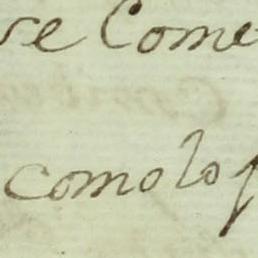 se Come
como lo p